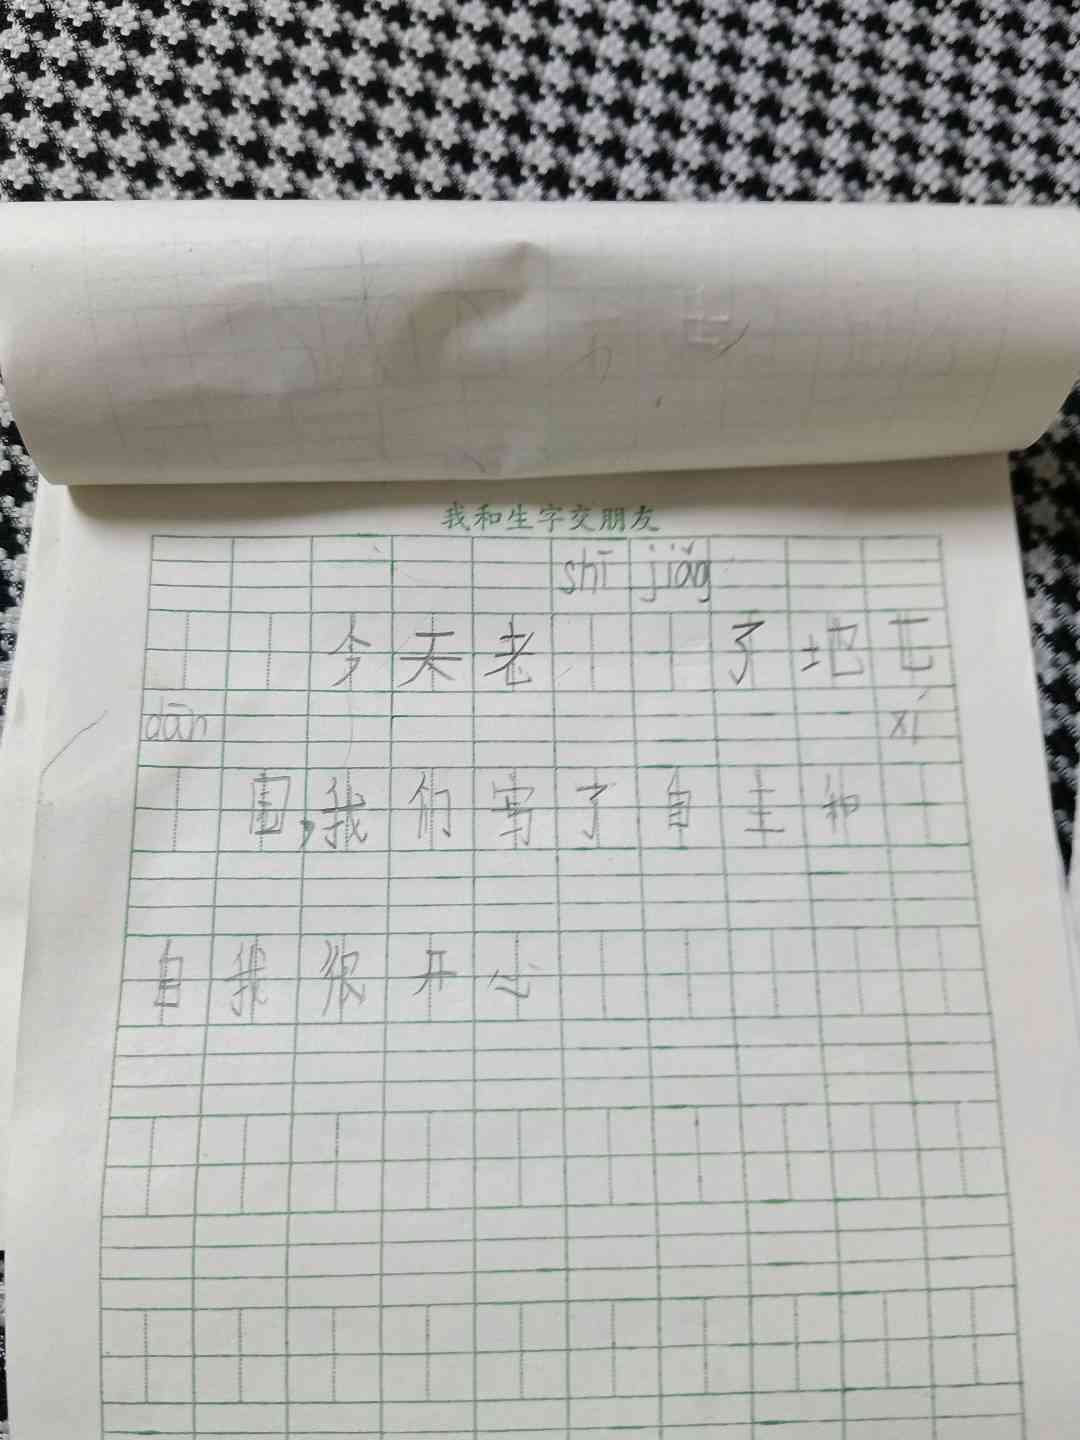 我和生字交朋友
shī jiǎg
今天老 了地
dān xí
我们写了自主和
自我很开心